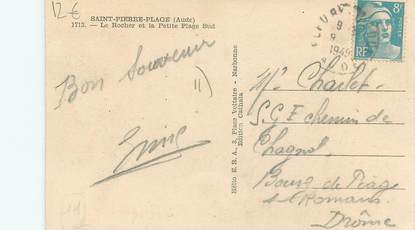 12€
SAINT-PIERRE-PLAGE (Aude)
1713. — Le Rocher et la Petite Plage Sud
Bon Souvenir
Hélio E. R. A., 3, Place Voltaire - Narbonne
Edition Cathala
FLEURY
9
1949
8F
POSTES
RF
Mr Charlet
S.G.E chemin de
Chagnol
Bourg de Péage
s-Romans
Drôme